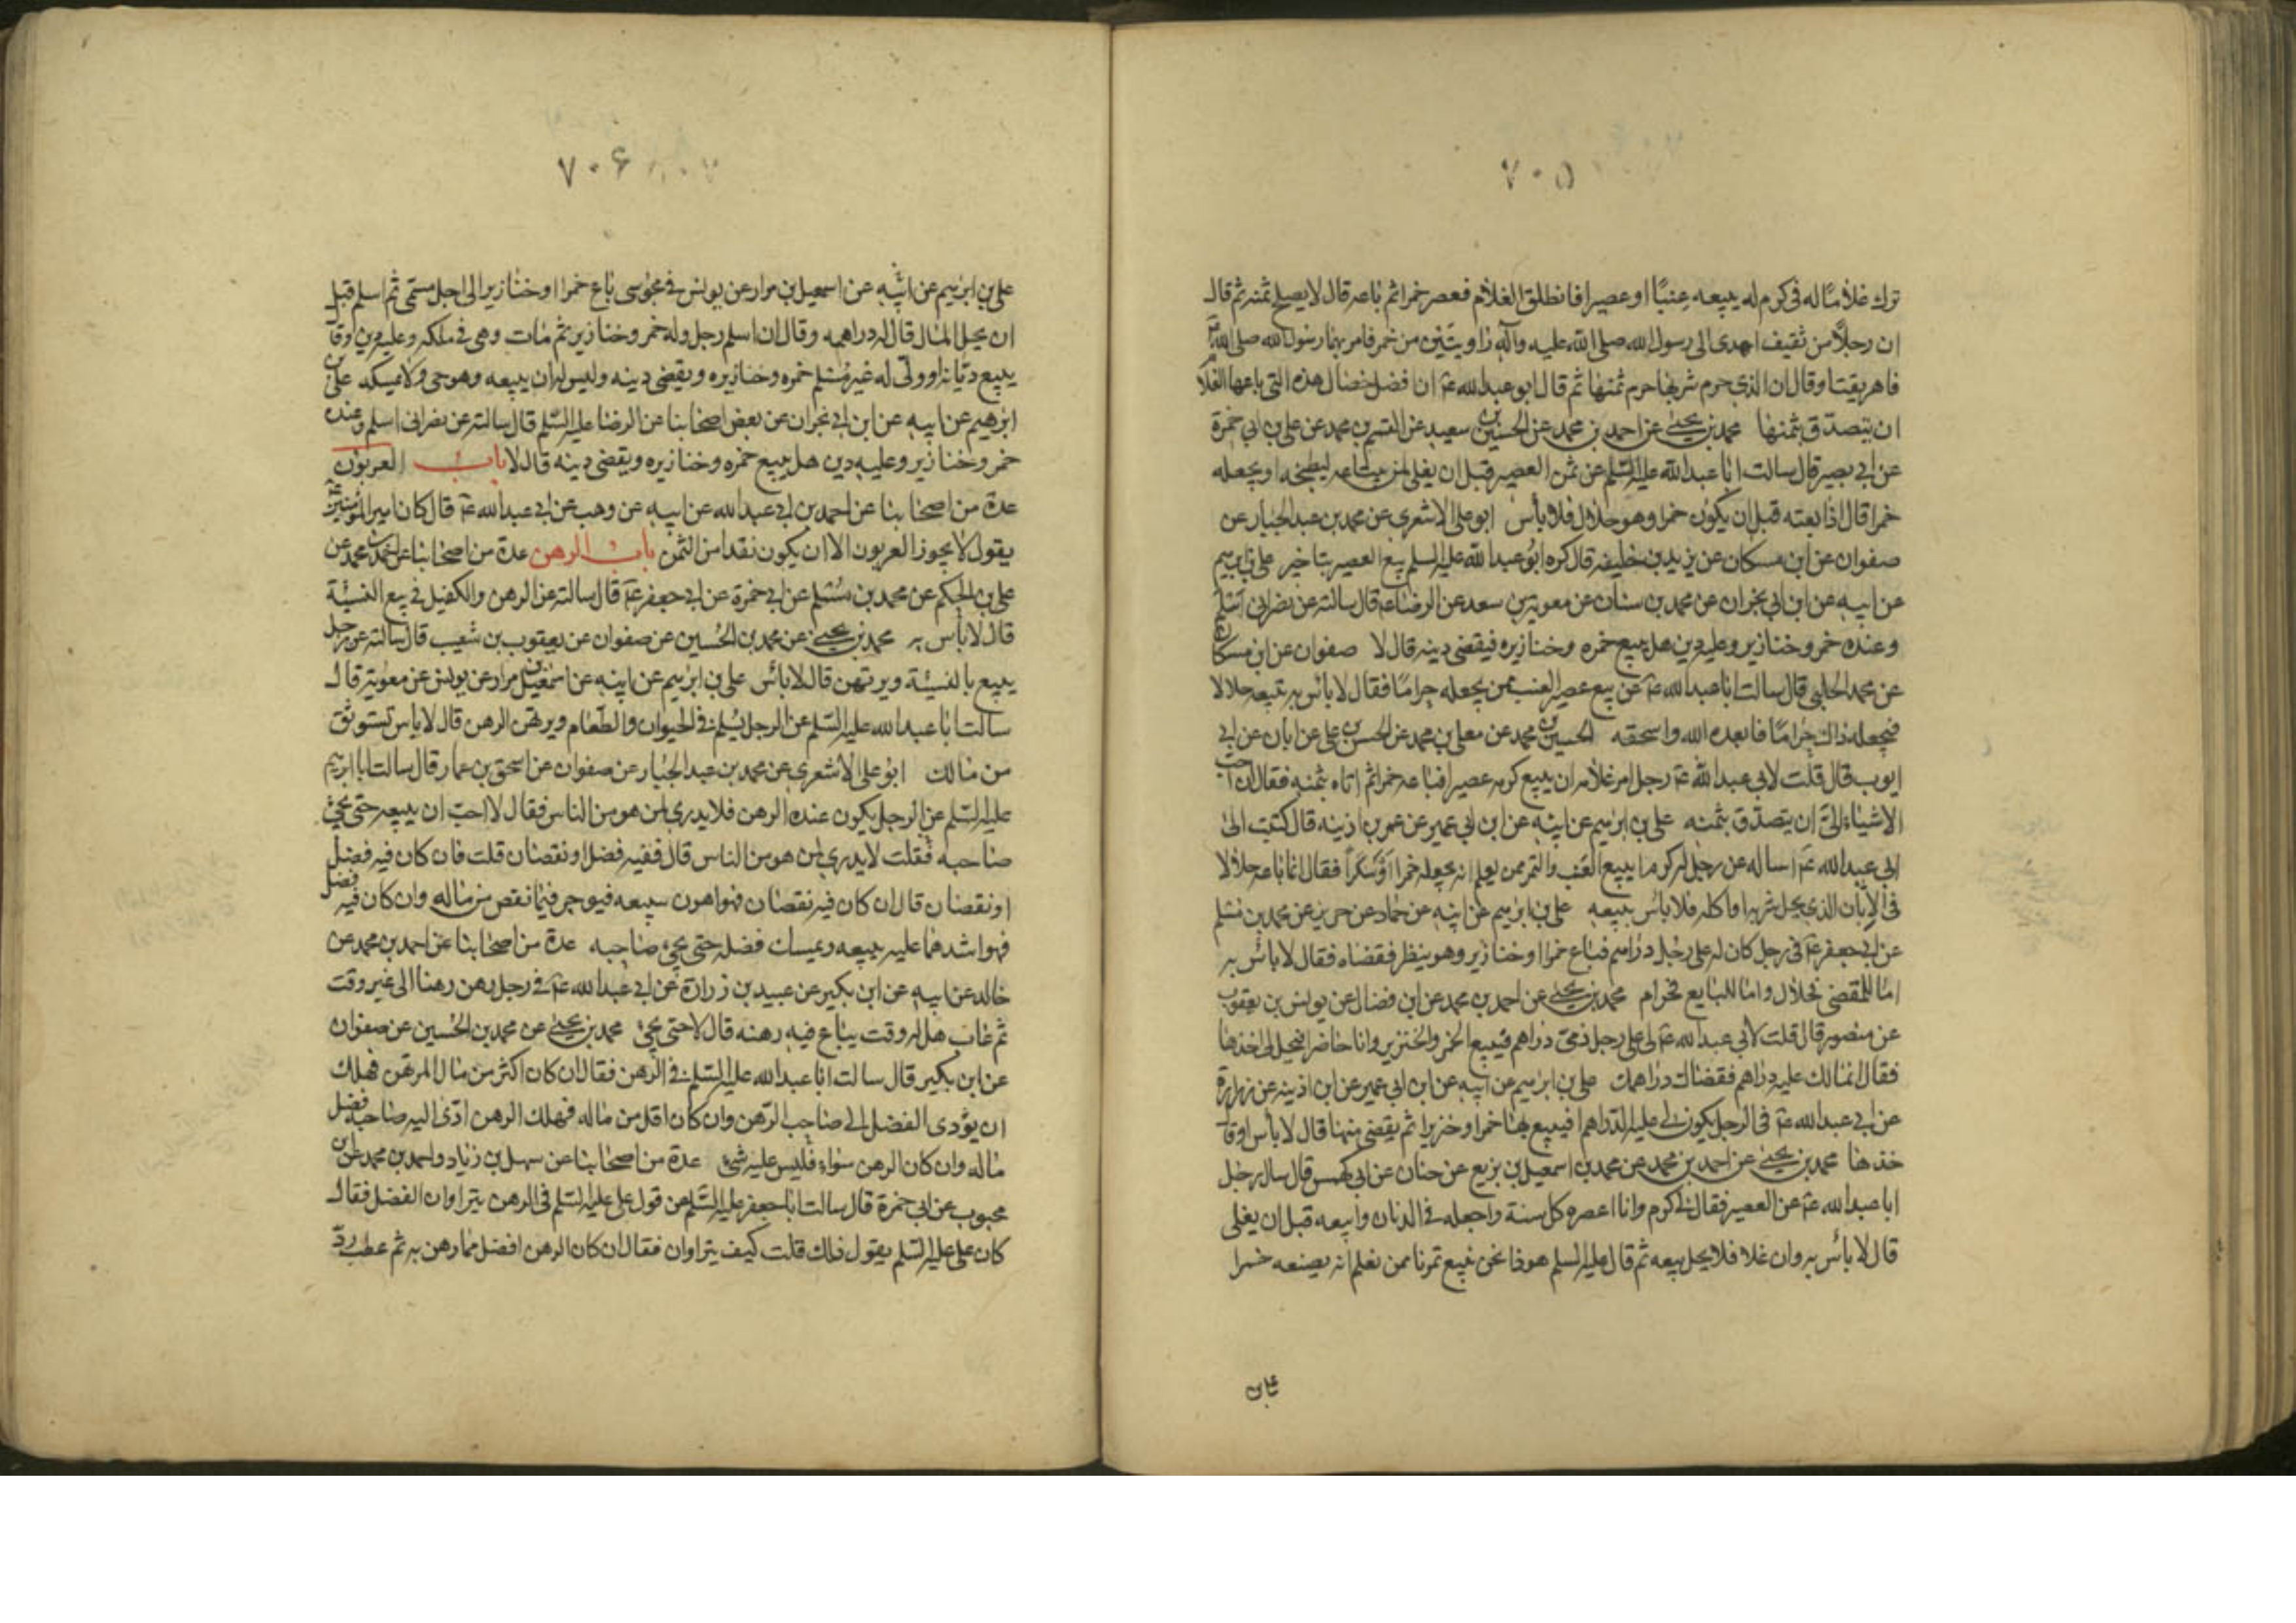 ٧٠۵
ترك غلاما له فى كرم له يبيعه عنبًا او عصيرا فانطلق الغلام فعصر خمرا ثم باعه قال لا يصلح ثمنه ثم قال
ان رجلًا من ثقيف اهدى الى رسول الله صلى الله عليه وآله راويتين من خمر فامر بهما رسول الله صلى الله
فاهريقتا وقال ان الذى حرم شربها حرم ثمنها ثم قال ابو عبد الله عم ان افضل خصال هذه التى باعها الغلا
ان يتصدق بثمنها محمد بن يحيى عن احمد بن محمد عن الحسين بن سعيد عن القسم بن محمد عن على بن ابى حمزة
عن ابى بصير قال سالت ابا عبد الله عليه السلم عن ثمن العصير قبل ان يغلى لمن يبتاعه ليطبخه او يجعله
خمرا قال اذا بعته قبل ان يكون خمرا وهو حلال فلا بأس ابو على الاشعرى عن محمد بن عبد الجبار عن
صفوان عن ابن مسكان عن يزيد بن خليفه قال كره ابو عبد الله عليه السلم بيع العصير بتاخير على بن ابرهيم
عن ابيه عن ابن ابى نجران عن محمد بن سنان عن معوية بن سعد عن الرضا عم قال سالته عن نصرانى اسلم
وعنده خمر وخنازير وعليه دين هل يبيع خمره وخنازيره فيقضى دينه قال لا صفوان عن ابن مسكان
عن محمد الحلبى قال سالت ابا عبد الله عم عن بيع عصير العنب ممن يجعله حرامًا فقال لا بأس به تبيعه حلالا
فيجعله ذاك حرامًا فابعده الله واسحقه الحسين بن محمد عن معلى بن محمد عن الحسن بن على عن ابان عن ابى
ايوب قال قلت لابى عبد الله عم رجل امر غلامه ان يبيع كرمه عصيرا فباعه خمرا ثم اتاه بثمنه فقال ان احب
الاشياء الىّ ان يتصدق بثمنه على بن ابرهيم عن ابيه عن ابن ابى عمير عن عمر بن اذينه قال كتبت الى
ابى عبد الله عم اساله عن رجل له كرم ايبيع العنب والتمر ممن يعلم انه يجعله خمرا او سكرًا فقال انما باعه حلالا
فى الابان الذى يحل شربه او اكله فلا بأس ببيعه على بن ابرهيم عن ابيه عن حماد عن حريز عن محمد بن مسلم
عن ابى جعفر عم فى رجل كان له على رجل دراهم فباع خمرا وخنازير وهو ينظر فقضاه فقال لا بأس به
اما للمقضى فحلال واما للبايع فحرام محمد بن يحيى عن احمد بن محمد عن ابن فضال عن يونس بن يعقوب
عن منصور قال قلت لابى عبد الله عم لى على رجل ذمى دراهم فيبيع الخمر والخنزير وانا حاضر فيحل لى اخذها
فقال انما لك عليه دراهم فقضاك دراهمك على بن ابرهيم عن ابيه عن ابن ابى عمير عن ابن اذينه عن زرارة
عن ابى عبد الله عم فى الرجل يكون لى عليه الدراهم فيبيع بها خمرا وخنزيرا ثم يقضى منها قال لا بأس او قال
خذها محمد بن يحيى عن احمد بن محمد عن محمد بن اسمعيل بن بزيع عن حنان عن ابى كهمس قال سال رجل
ابا عبد الله عم عن العصير فقال لى كرم وانا اعصره كل سنة واجعله فى الدنان وابيعه قبل ان يغلى
قال لا بأس به وان غلا فلا يحل بيعه ثم قال عليه السلم هوذا نحن نبيع تمرنا ممن نعلم انه يصنعه خمرا
٧٠۶
على بن ابرهيم عن ابيه عن اسمعيل بن مرار عن يونس فى مجوسى باع خمرا او خنازير الى اجل مسمى ثم اسلم قبل
ان يحل المال قال له دراهمه وقال ان اسلم رجل وله خمر وخنازير ثم مات وهى فى ملكه وعليه دين قال
يبيع ديانه او ولى له غير مسلم خمره وخنازيره ويقضى دينه وليس له ان يبيعه وهو حى ولا يمسكه على بن
ابرهيم عن ابيه عن ابن ابى نجران عن بعض اصحابنا عن الرضا عليه السلم قال سالته عن نصرانى اسلم وعنده
خمر وخنازير وعليه دين هل يبيع خمره وخنازيره ويقضى دينه قال لا باب العربون
عدة من اصحابنا عن احمد بن ابى عبد الله عن ابيه عن وهب عن ابى عبد الله عم قال كان امير المؤمنين
يقول لا يجوز العربون الا ان يكون نقدا من الثمن باب الرهن عدة من اصحابنا عن احمد بن محمد عن
على بن الحكم عن محمد بن مسلم عن ابى حمزة عن ابى جعفر عم قال سالته عن الرهن والكفيل فى بيع النسيئة
قال لا بأس به محمد بن يحيى عن محمد بن الحسين عن صفوان عن يعقوب بن شعيب قال سالته عن رجل
يبيع بالنسيئة ويرتهن قال لا بأس على بن ابرهيم عن ابيه عن اسمعيل بن مرار عن يونس عن معوية قال
سالت ابا عبد الله عليه السلم عن الرجل يسلم فى الحيوان والطعام ويرتهن الرهن قال لا بأس تستوثق
من مالك ابو على الاشعرى عن محمد بن عبد الجبار عن صفوان عن اسحق بن عمار قال سالت ابا ابرهيم
عليه السلم عن الرجل يكون عنده الرهن فلا يدرى لمن هو من الناس فقال لا احب ان يبيعه حتى يجئ
صاحبه فقلت لا يدرى لمن هو من الناس قال ففيه فضل او نقصان قلت فان كان فيه فضل
او نقصان قال ان كان فيه نقصان فهو اهون يبيعه فيوجر فيما نقص من ماله وان كان فيه فضل
فهو اشدهما عليه يبيعه ويمسك فضله حتى يجئ صاحبه عدة من اصحابنا عن احمد بن محمد عن
خالد عن ابيه عن ابن بكير عن عبيد بن زرارة عن ابى عبد الله عم فى رجل رهن رهنا الى غير وقت
ثم غاب هل له وقت يباع فيه رهنه قال لا حتى يجئ محمد بن يحيى عن محمد بن الحسين عن صفوان
عن ابن بكير قال سالت ابا عبد الله عليه السلم فى الرهن فقال ان كان اكثر من مال المرتهن فهلك
ان يؤدى الفضل الى صاحب الرهن وان كان اقل من ماله فهلك الرهن ادى اليه صاحبه فضل
ماله وان كان الرهن سواء فليس عليه شئ عدة من اصحابنا عن سهل بن زياد واحمد بن محمد عن ابن
محبوب عن ابى حمزة قال سالت ابا جعفر عليه السلم عن قول على عليه السلم فى الرهن يترادان الفضل فقال
كان على عليه السلم يقول ذلك قلت كيف يترادان فقال ان كان الرهن افضل مما رهن به ثم عطب رد